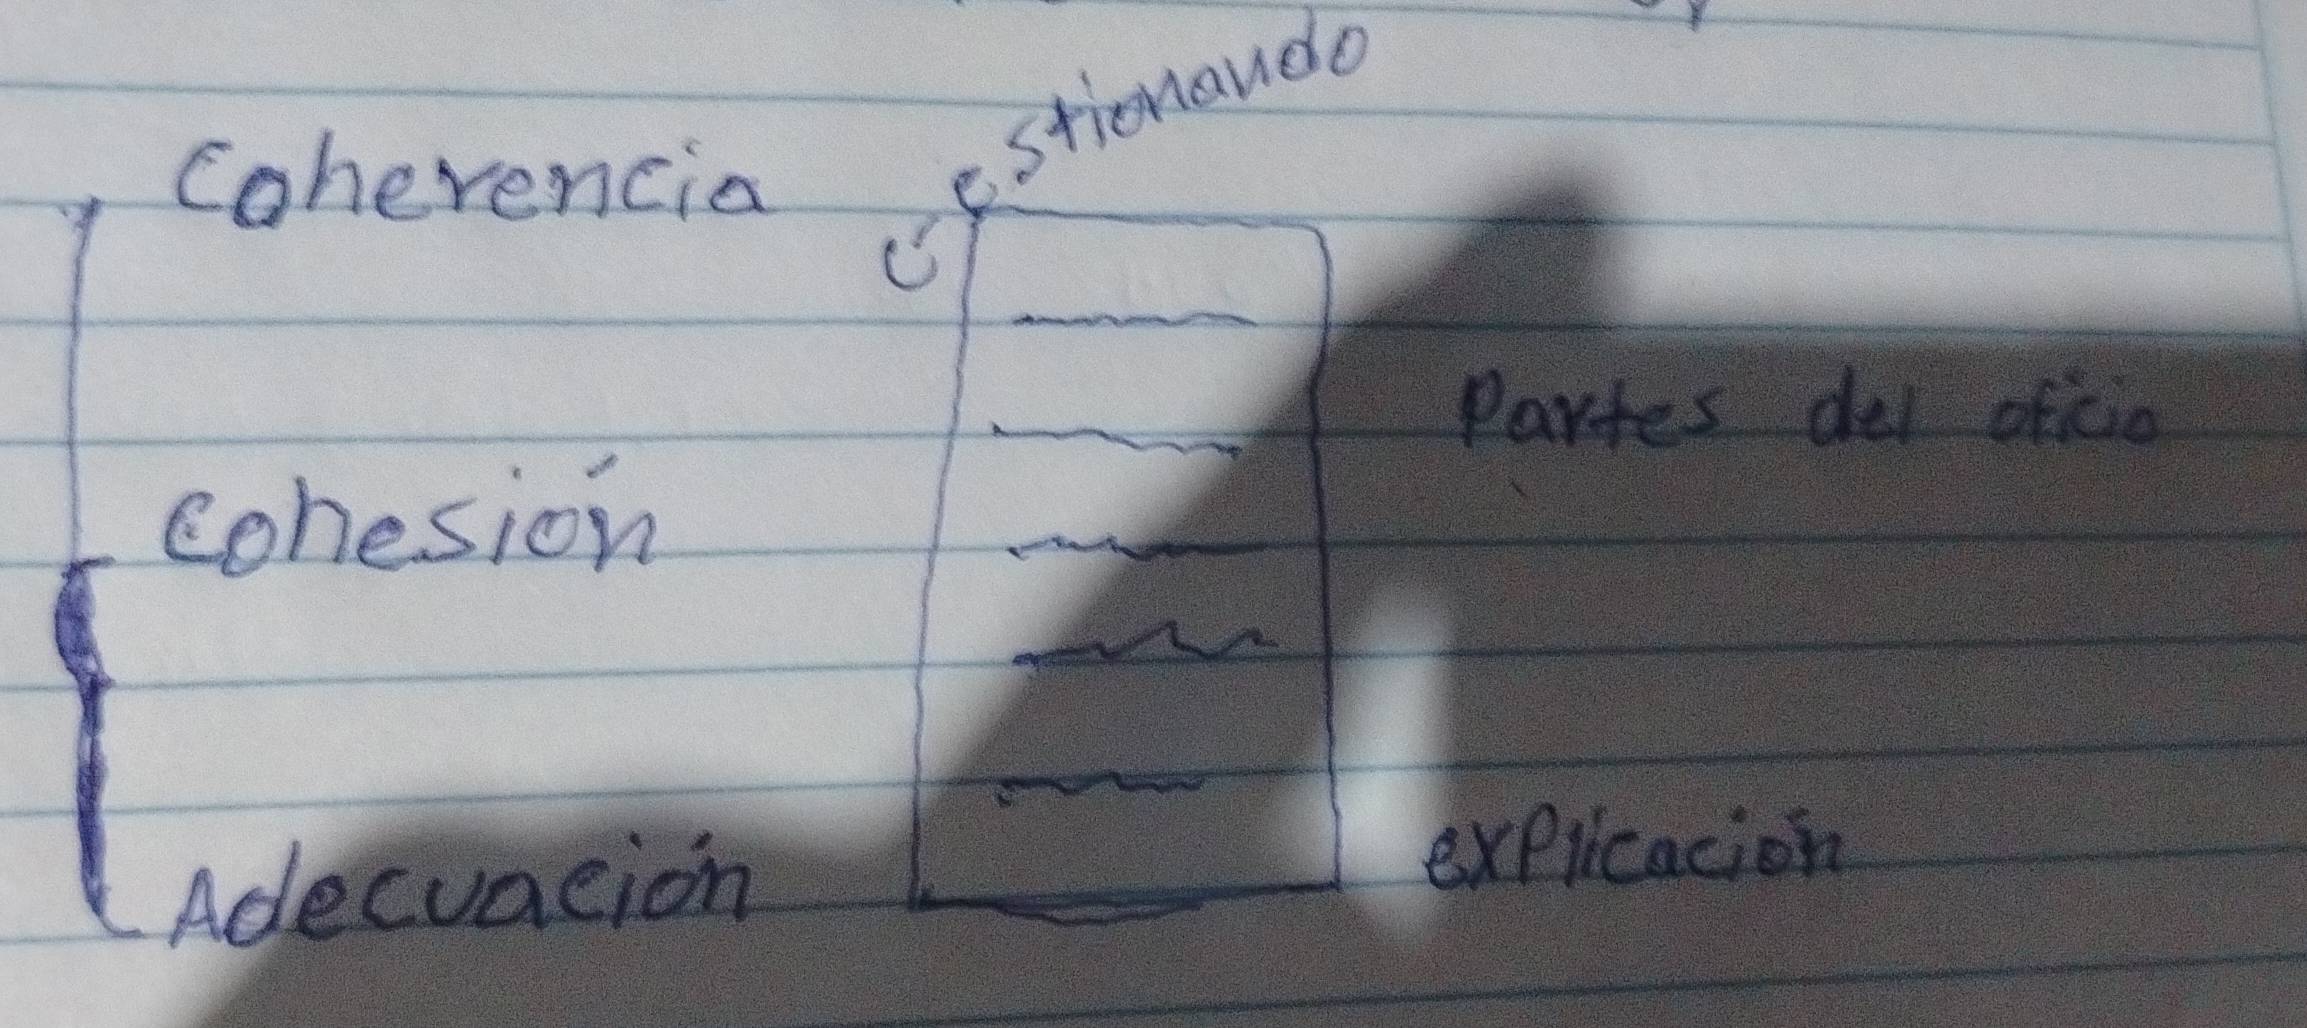 Coherencia
Cohesión
Adecuación
Partes del oficio
explicación